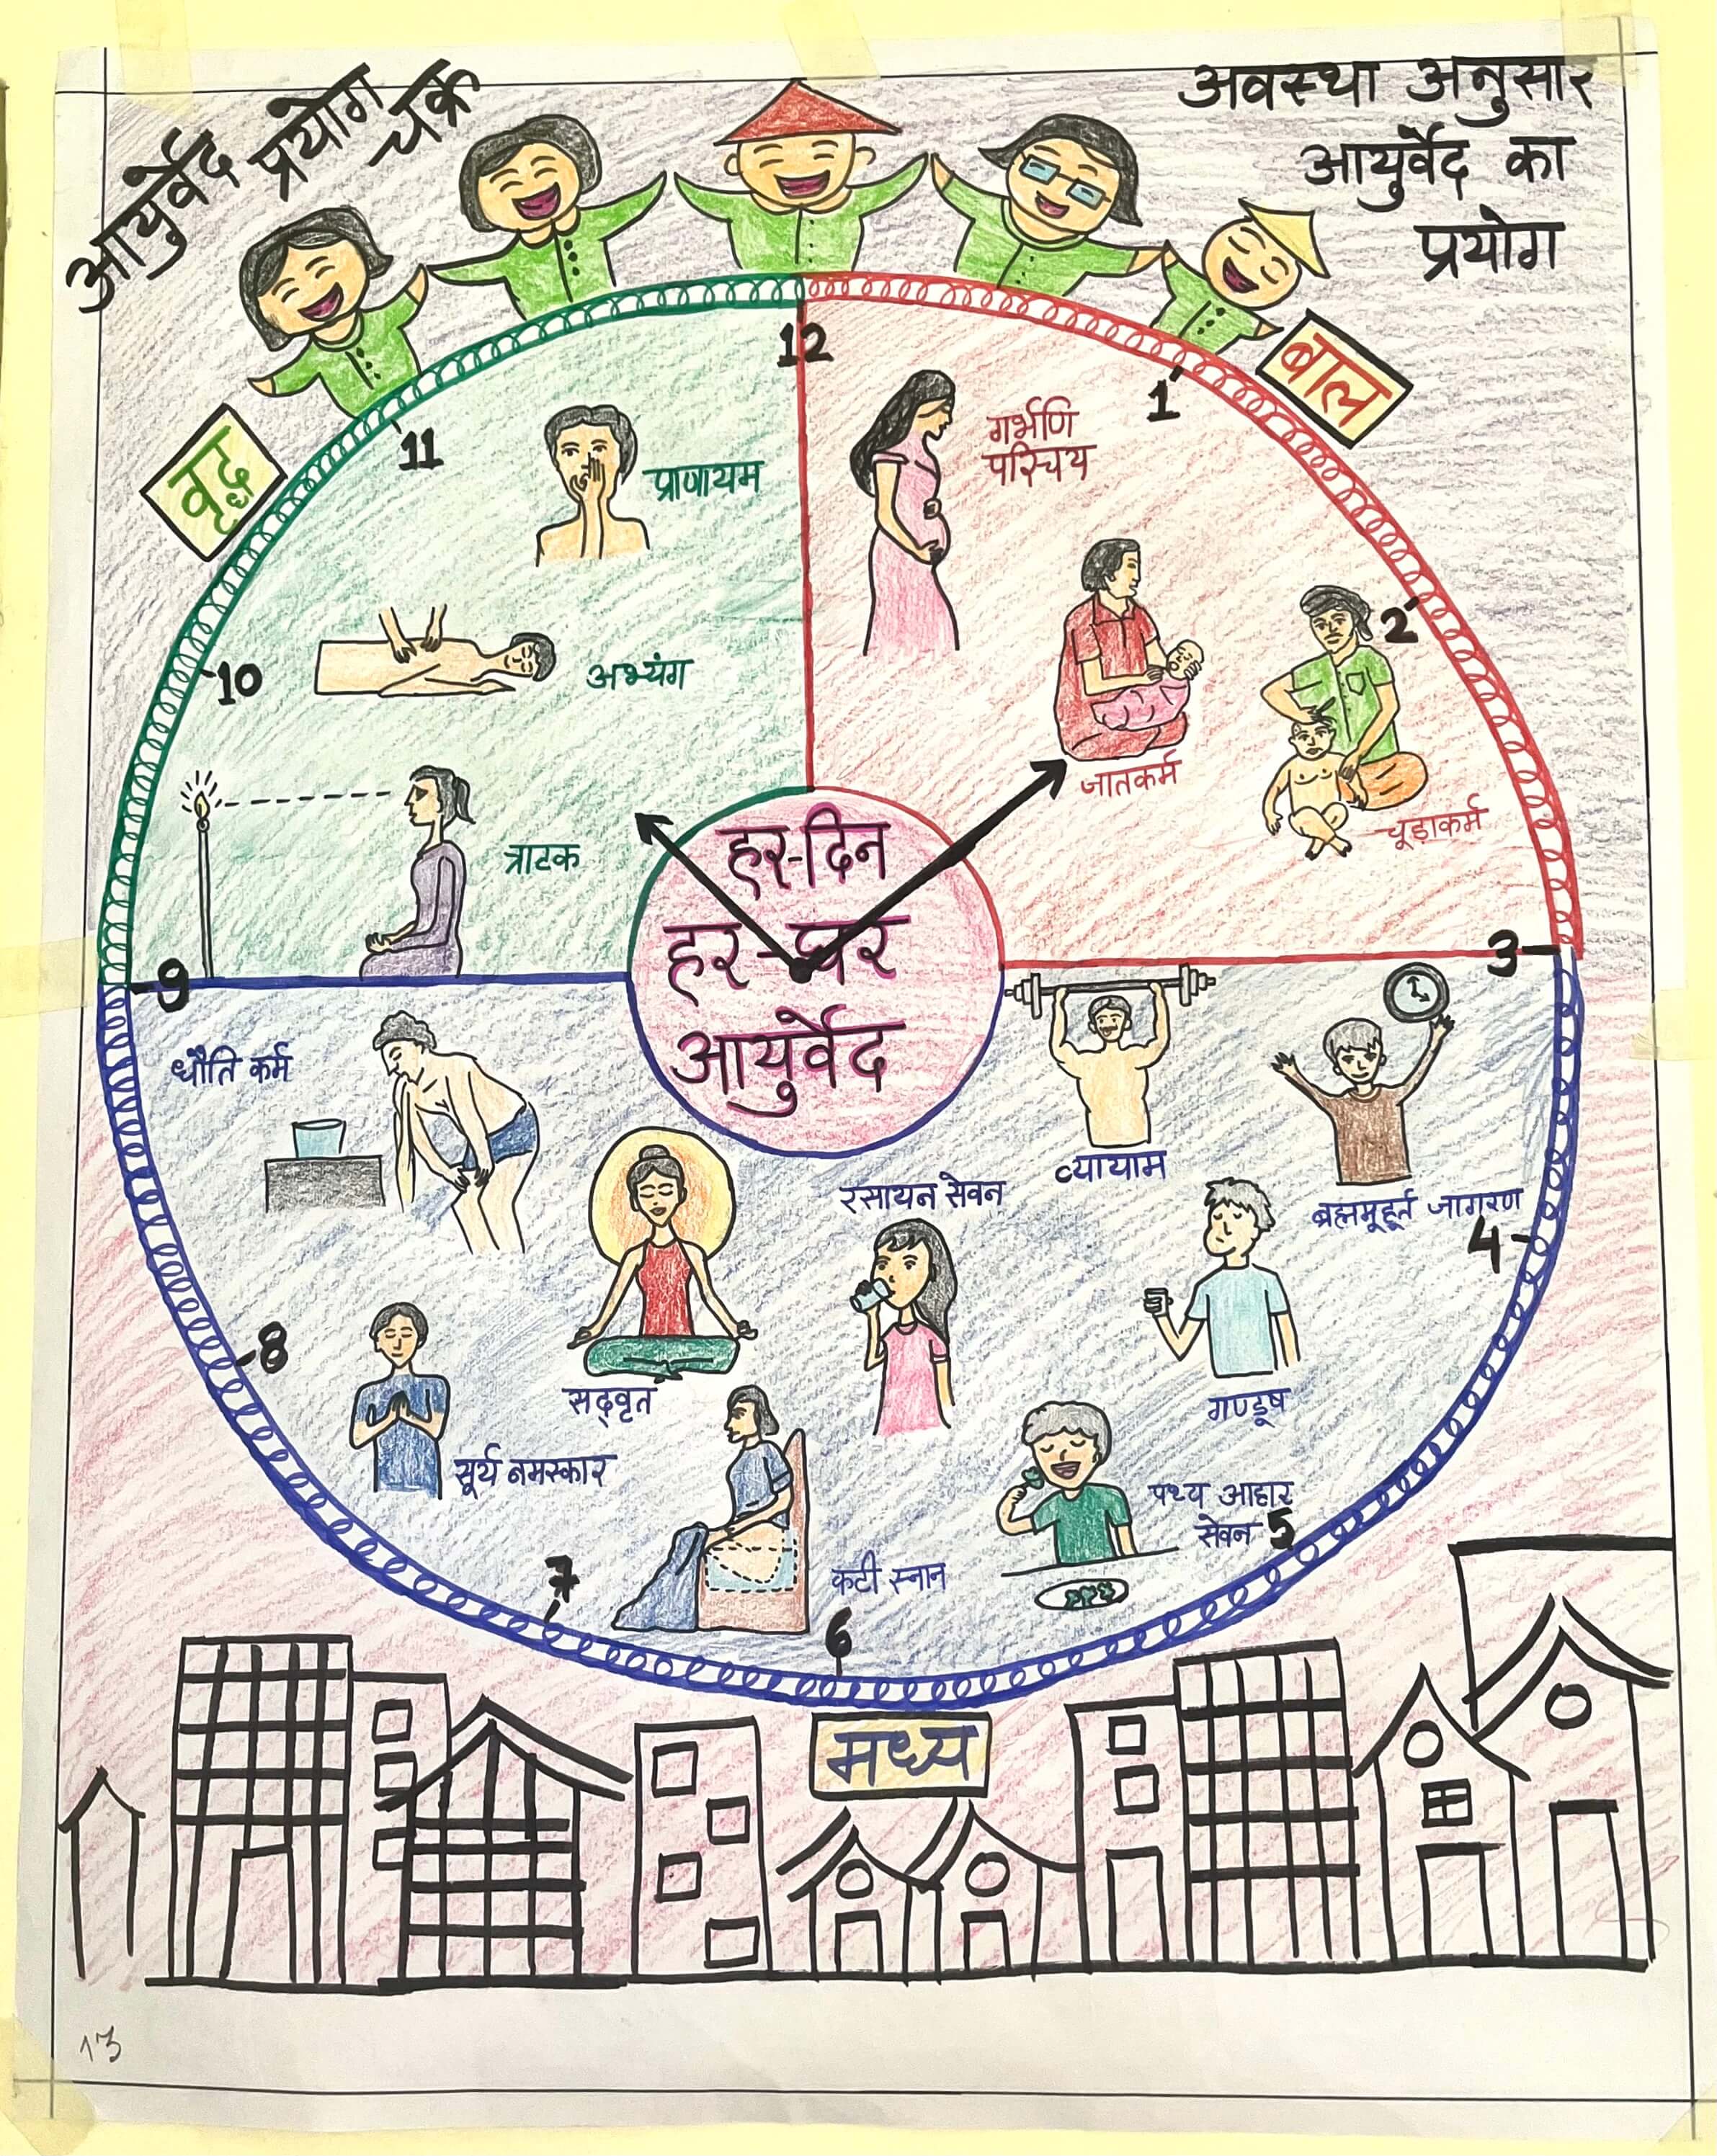 आयुर्वेद प्रयोग चक्र
अवस्था अनुसार
आयुर्वेद का
प्रयोग
वृद्ध
बाल
12
1
2
3
4
5
6
7
8
9
10
11
प्राणायम
अभ्यंग
त्राटक
गर्भणि
परिचय
जातकर्म
चूड़ाकर्म
हर-दिन
हर-घर
आयुर्वेद
धौति कर्म
व्यायाम
ब्रह्ममूहूर्त जागरण
रसायन सेवन
सद्वृत
गण्डूष
सूर्य नमस्कार
पथ्य आहार
सेवन
कटी स्नान
मध्य
13